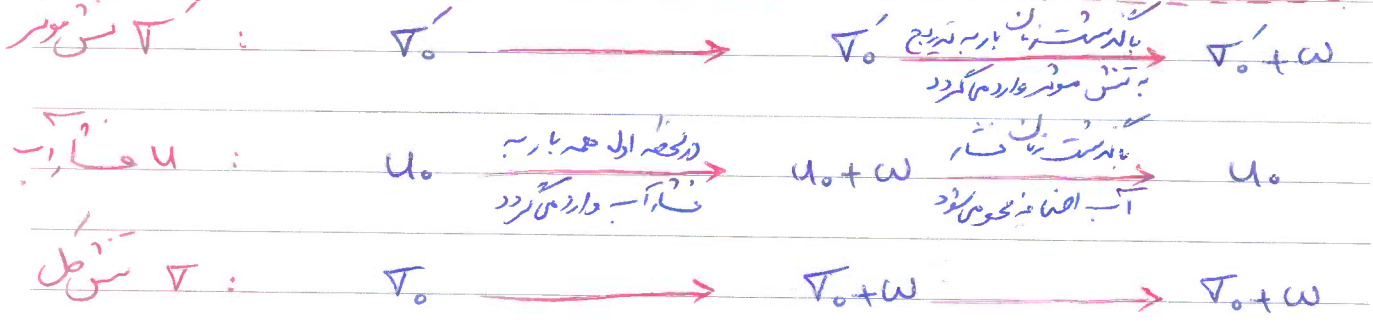 σ' تنش موثر : σ'₀ → σ'₀ با گذشت زمان بار به تدریج به تنش موثر وارد می‌گردد → σ'₀ + ω
u فشار آب : u₀ در لحظه اول همه بار به فشار آب وارد می‌گردد → u₀ + ω با گذشت زمان فشار آب اضافه محو می‌شود → u₀
σ تنش کل : σ₀ → σ₀ + ω → σ₀ + ω